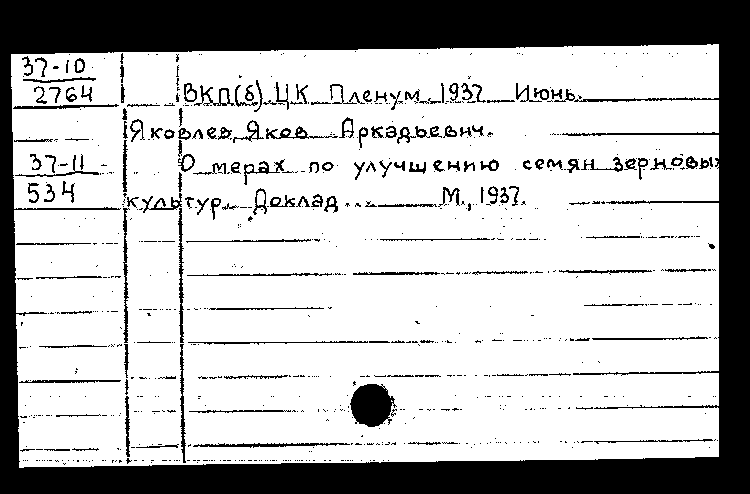 37-10
2764
ВКП(б). ЦК Пленум. 1937 Июнь.
Яковлев, Яков Аркадьевич.
37-11
534
О мерах по улучшению семян зерновых
культур. Доклад... М., 1937.